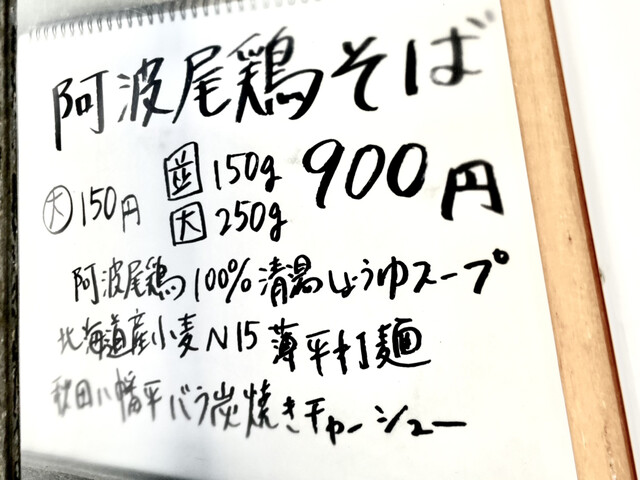 阿波尾鶏そば
並 150g 900円
大 150円 大 250g
阿波尾鶏100%清湯しょうゆスープ
北海道産小麦N15薄平打麺
秋田八幡平バラ炭焼きチャーシュー